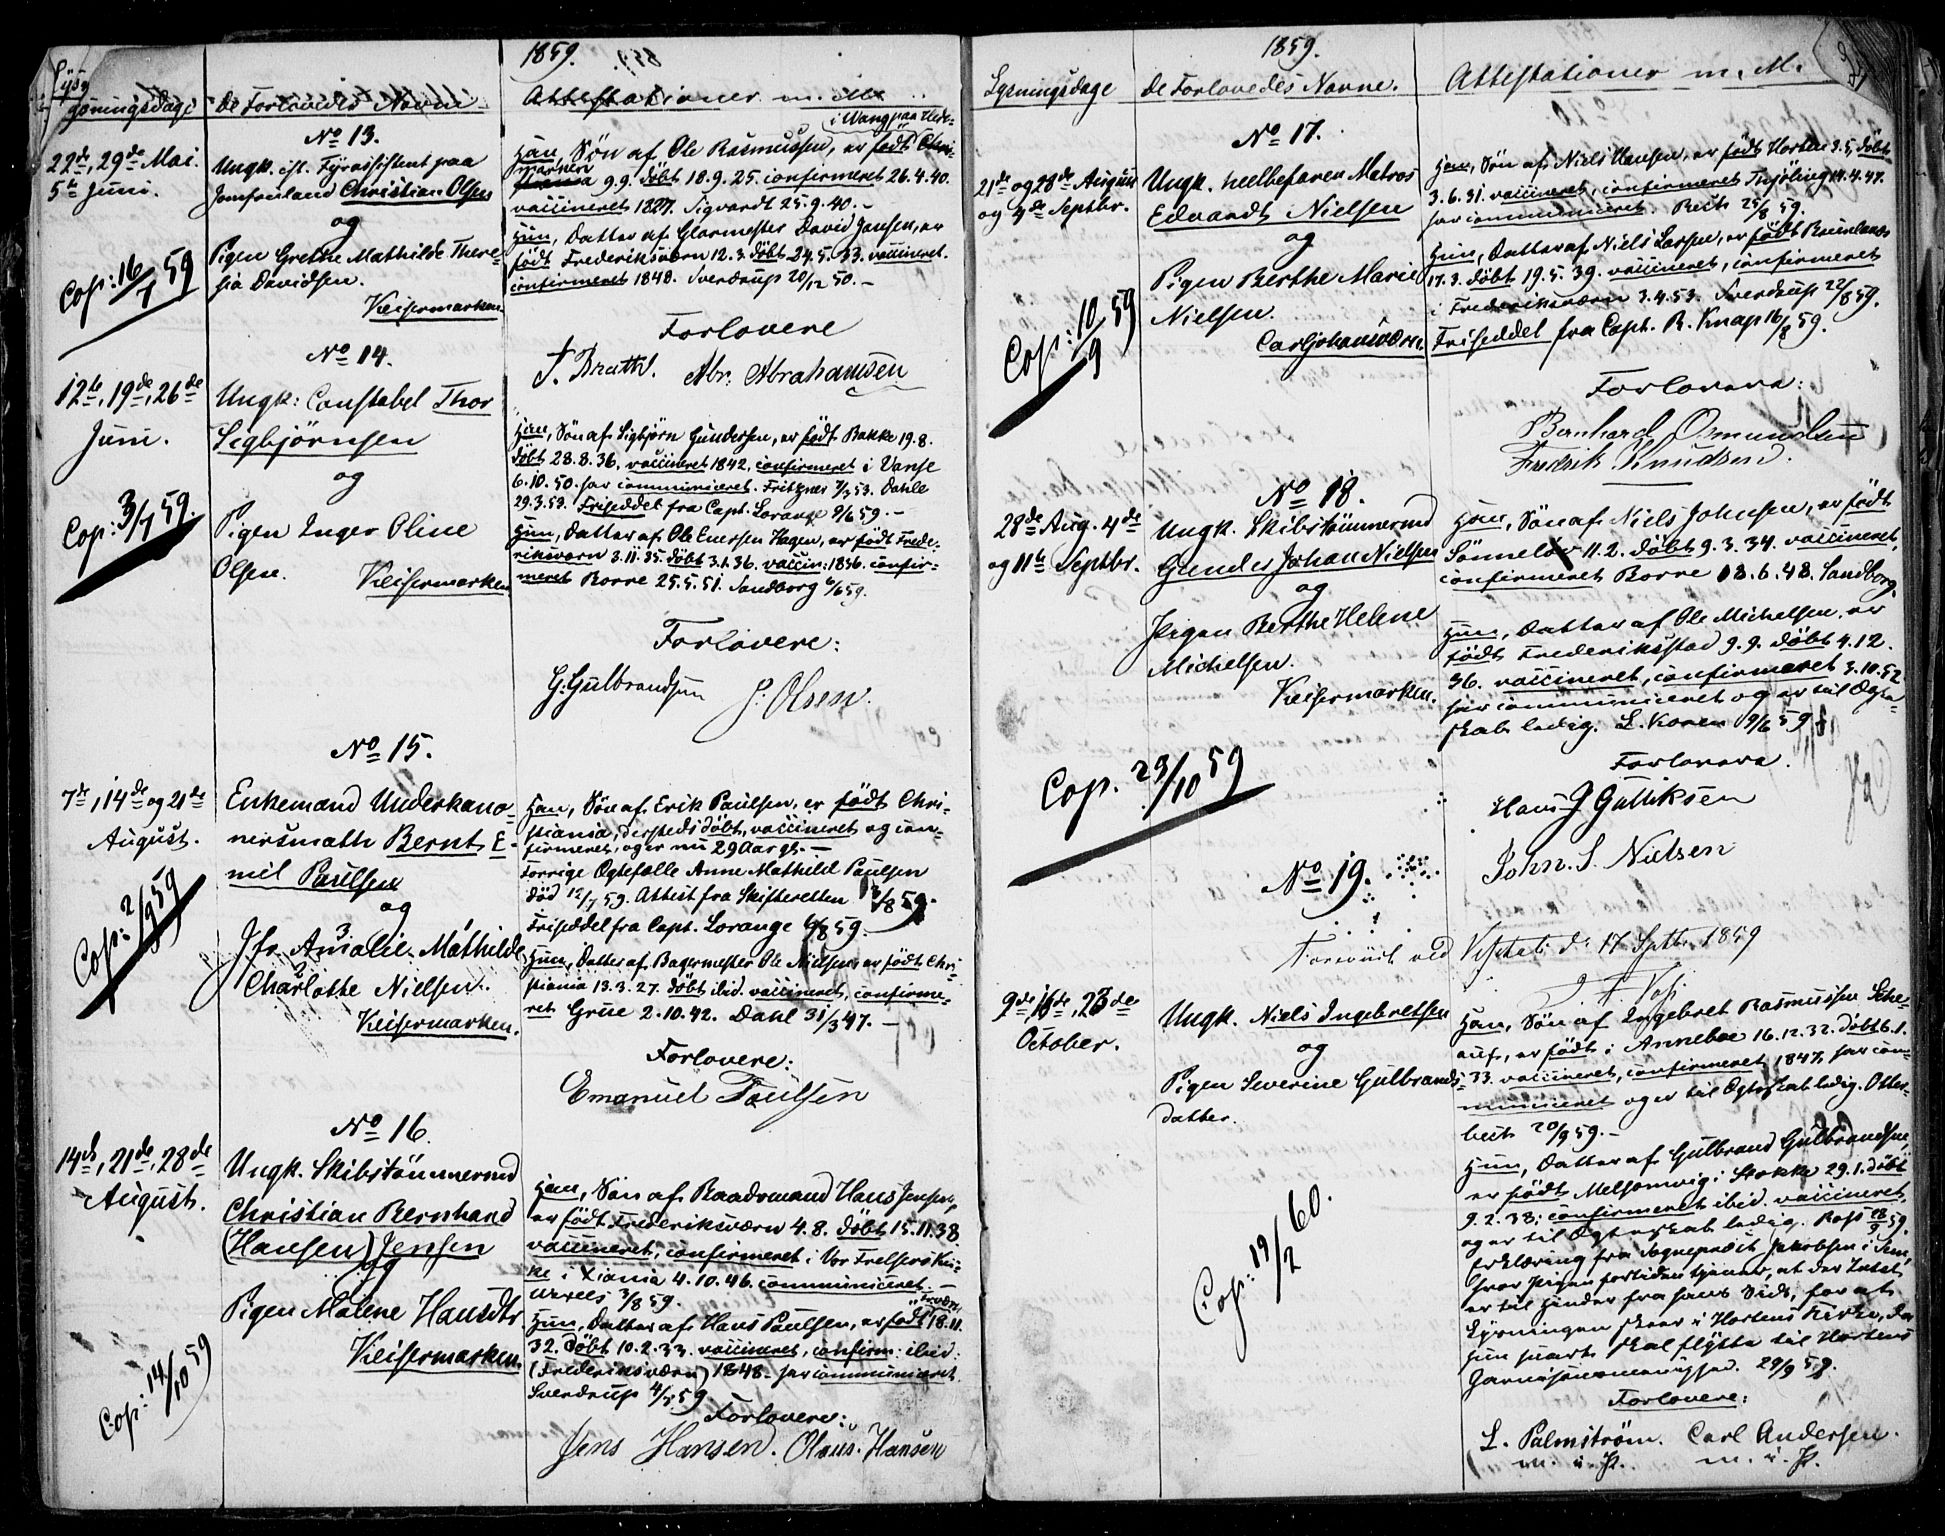 1859.
Lysningsdage
De Forlovedes Navne
Attestationer m. M.
No 13.
22de, 29de Mai.
5te Juni.
Ungk. est. Fyrassistent paa
Jomfruland Christian Olsen
og
Pigen Grethe Mathilde There-
sia Davidsen.
Keisermarken.
Cop: 16/7 59
i Vang paa Hede-
Han, Søn af Ole Rasmussen, er født Chri-
9.9. døbt 18.9.25. confirmeret 26.4.40.
vaccineret 1827. Sigvardt 25.9.40.-
Hun, Datter af Glarmester David Jansen, er
født Frederiksværn 12.3. døbt 24.5.33. vaccineret.
confirmeret 1848. Sverdrup 20/12 50.-
Forlovere
T. Brath. Abr. Abrahamsen
No 14.
12te, 19de, 26de
Juni.
Ungk: Constabel Thor
Sigbjørnsen
og
Pigen Inger Oline
Olsen. Keisermarken
Cop: 3/7 59.
Han, Søn af Sigbjørn Gundersen, er født Bakke 19.8.
døbt 28.8.36. vaccineret 1842, confirmeret i Vanse
6.10.50. har communiceret. Fritzner 7/7 53. Dahle
29.3.59. Friseddel fra Capt. Lorange 9/6 59.-
Hun, Datter af Ole Enersen Hagen, er født Frede-
riksværn 3.11.35. døbt 3.1.36. vaccin: 1836. confir-
meret Borre 25.5.51. Sandborg 6/6 59.
Forlovere:
G. Gulbrandsen J. Olsen.
No 15.
7de, 14de og 21de
August.
Enkemand Underkano-
neersmath Bernt E-
mil Paulsen
og
Jfr. Amalie Mathilde
Charlotte Nielsen.
Keisermarken.
Cop: 2/9 59
Han, Søn af Erik Paulsen, er født Chri-
stiania, dersteds døbt, vaccineret og con-
firmeret, og er nu 29 Aar gl.-
Forrige Ægtefælle Anne Mathild Paulsen
død 12/7 59. Attest fra Skifteretten 13/8 59.
Friseddel fra Capt. Lorange 6/8 59.-
Hun, Datter af Bagermester Ole Nielsen, er født Chri-
stiania 13.3.27. døbt ibid. vaccineret, confirme-
ret Grue 2.10.42. Dahl 31/3 47.-
Forlovere:
Emanuel Poulsen
No 16.
14de, 21de, 28de
August.
Ungk. Skibstømmermd
Christian Bernhard
(Hansen) Jensen
og
Pigen Malene Hansdtr.
Keisermarken.
Cop: 14/10 59
Han, Søn af Raadsmand Hans Jensen,
er født Frederiksværn 4.8. døbt 15.11.38
vaccineret, confirmeret i Vor Frelsers Kir-
ke i Xiania 4.10.46. communiceret.-
Wexels 3/8 59.
Hun, Datter af Hans Paulsen, er født 18.11.
32. døbt 10.2.33. vaccineret, confirm: ibid:
(Frederiksværn) 1848. har communiceret.
Sverdrup 4/7 59.
Forlovere:
Jens Hansen. Olaus. Hansen
1859.
Lysningsdage
De Forlovedes Navne.
Attestationer m. M.
No 17.
21de og 28de August
og 4de Septbr.
Ungk. heelbefaren Matros
Edvardt Nielsen
og
Pigen Berthe Marie
Nielsen.
Carljohansværn.
Cop: 10/9 59
Han, Søn af Niels Hansen, er født Horten 3.5. døbt
3.6.31. vaccineret, confirmeret Thjøling 14.4.47.
har communiceret. 25/8 59.
Hun, Datter af Niels Larsen, er født Brunlanes
17.3. døbt 19.5.39. vaccineret, confirmeret
i Frederiksværn 3.4.53. Sverdrup 22/8 59.
Friseddel fra Capt. R. Knap 16/8 59.
Forlovere:
Bernhard Osmundsen
Fredrik Knudsen.
No 18.
28de Aug. 4de
og 11te Septbr.
Ungk. Skibstømmermd
Gunder Johan Nielsen
og
Pigen Berthe Helene
Michelsen.
Keisermarken.
Cop. 23/10 59
Han, Søn af Niels Johnsen, er født
Sønneløv 11.2. døbt 9.3.34. vaccineret,
confirmeret Borre 18.6.48. Sandborg.
Hun, Datter af Ole Michelsen, er
født Frederiksstad 9.9. døbt 4.12.
36. vaccineret, confirmeret 3.10.52
har communiceret og er til Ægte-
skab ledig. L. Koren 9/6 59
Forlovere.
Hans J Gulliksen
John. S. Nielsen
No 19.
Forevist ved Visitats d. 17 Septbr. 1859
9de, 16de, 23de
October.
Ungk. Niels Ingebretsen
og
Pigen Severine Gulbrands-
datter.
Cop: 19/2 60.
Han, Søn af Ingebret Rasmussen Sche-
auf, er født i Anneboe 16.12.32. døbt 6.1.
33. vaccineret, confirmeret 1847, har com-
municeret og er til Ægteskab ledig. Otter-
bech 20/9 59.-
Hun, Datter af Gulbrand Gulbrandsen,
er født Melsomvig i Stokke 29.1. døbt
9.2.38: confirmeret ibid. vaccineret,
og er til Ægteskab ledig. 18/9 59.
Erklæring fra Sognepræst Jakobsen i Sem,
hvor Pigen fortiden tjener, at der Intet
er til Hinder fra hans Side, for at
Lysningen skeer i Hortens Kirke, da
hun snart skal flytte til Hortens
Garnisonsmenighed. 29/9 59.
Forlovere:
L. Palmstrøm. Carl Andersen.
m. i. P. m. i. P.